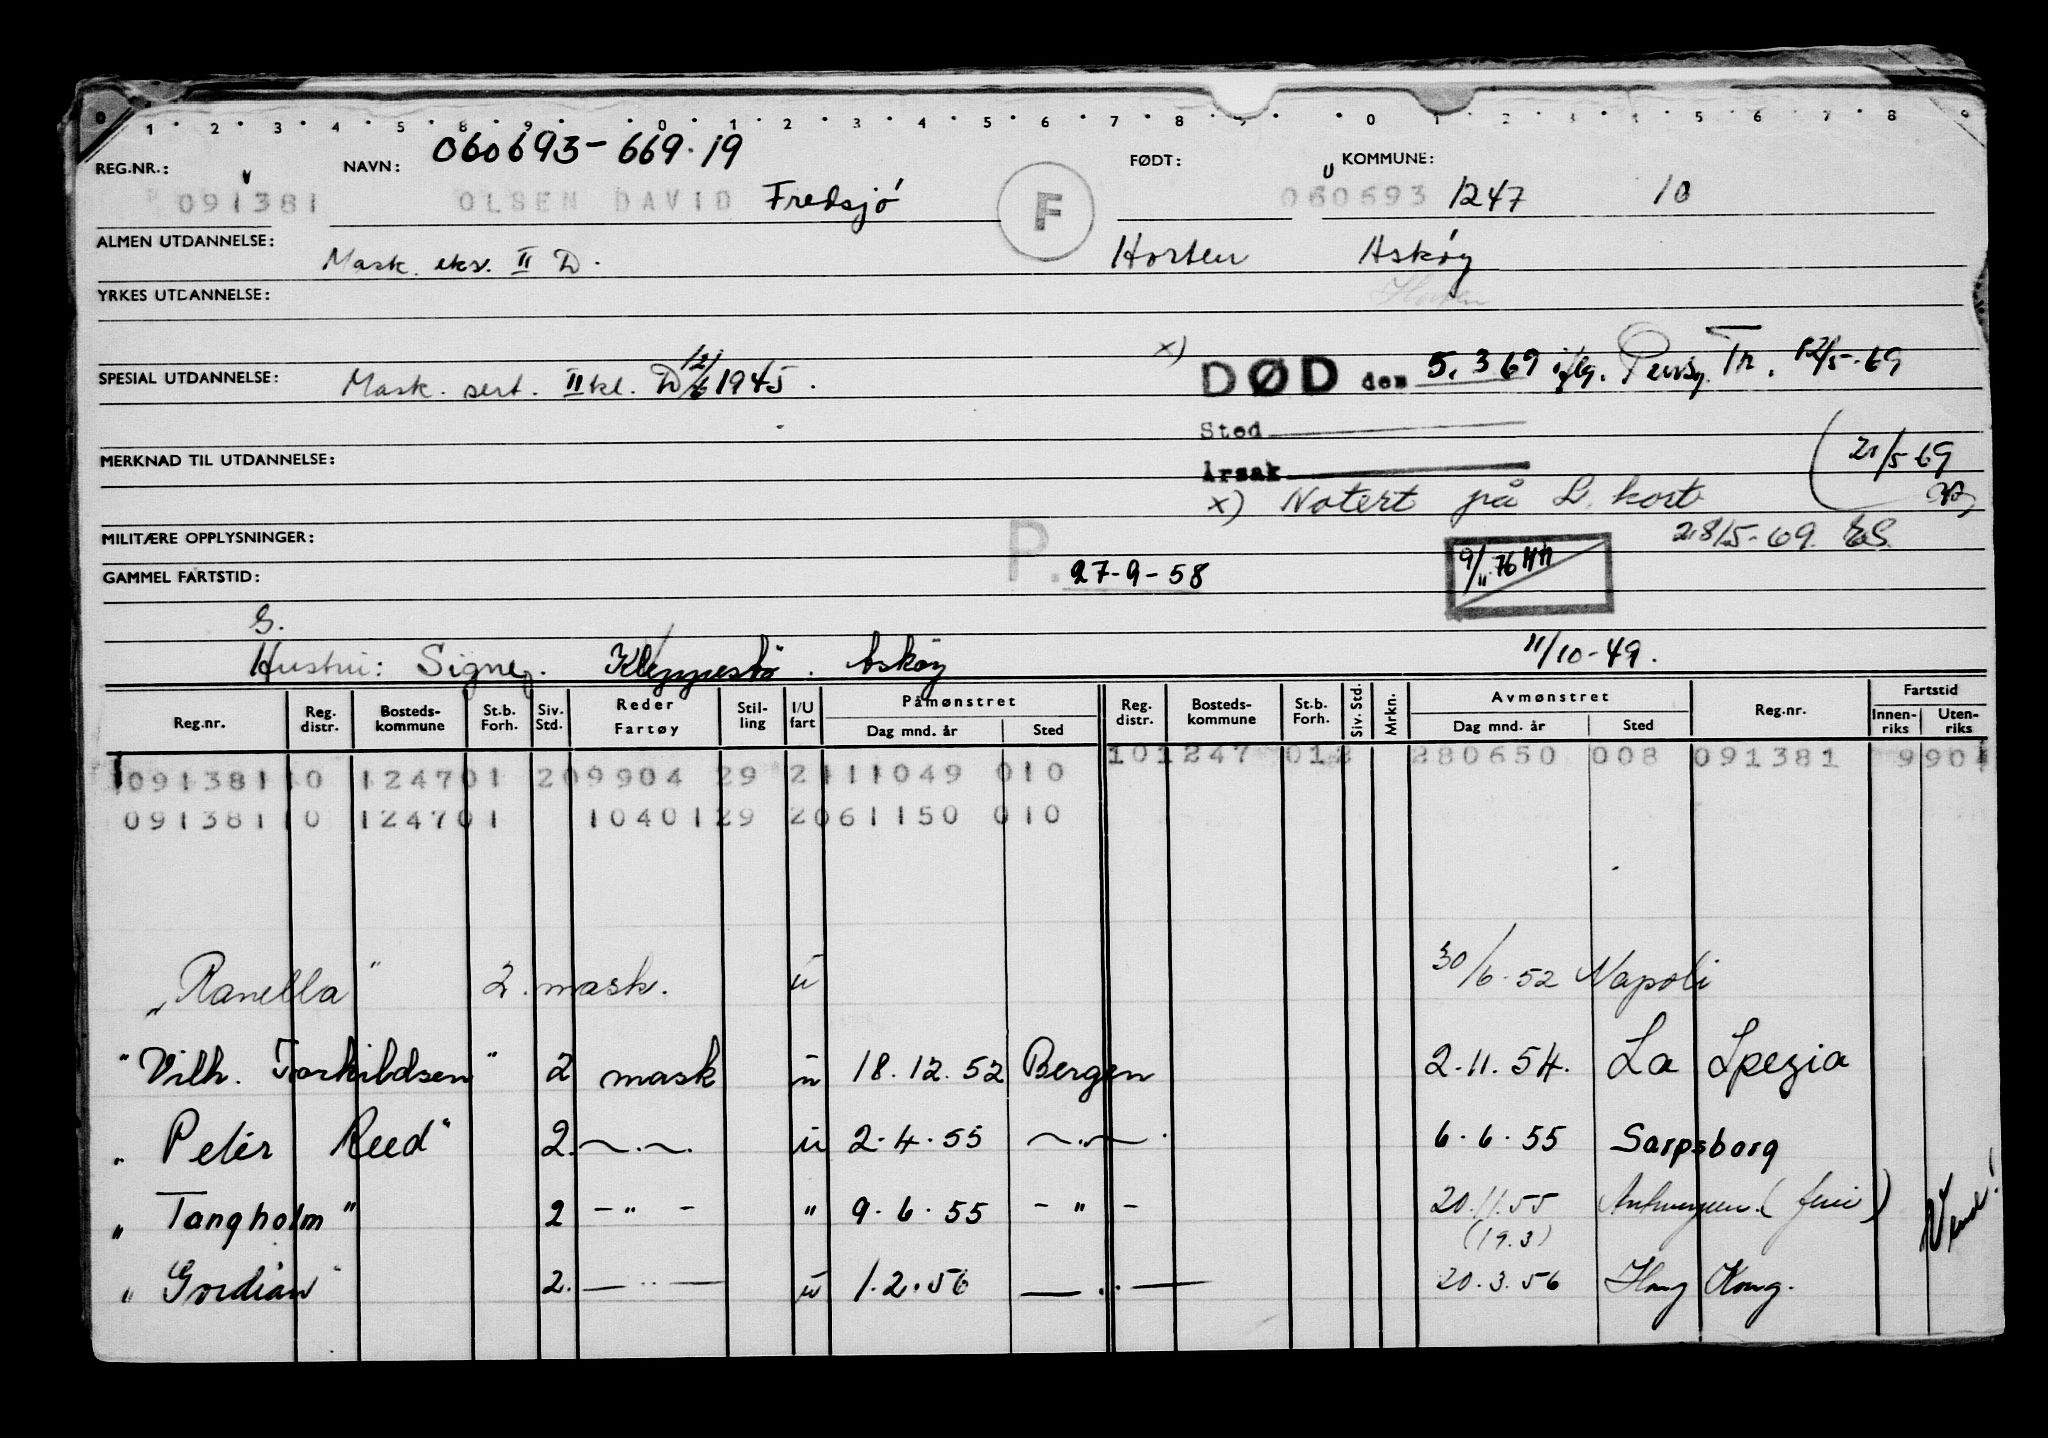 0 1 2 3 4 5 8 9 0 1 2 3 4 5 6 7 8 9 0 1 2 3 4 5 6 7 8 9
REG.NR.: NAVN: 060693-669.19 FØDT: KOMMUNE:
091381 OLSEN DAVID Fredsjö F 060693 1247 10
ALMEN UTDANNELSE: Mask. eks. II D. Horten Askøy
Horten
YRKES UTDANNELSE:
x) DØD den 5.3 69 iflg. Tr. 12/5-69
SPESIAL UTDANNELSE: Mask. sert. II kl. D 12/6 1945.
Sted
MERKNAD TIL UTDANNELSE: Årsak 21/5 69
x) Notert på L. kort
MILITÆRE OPPLYSNINGER: 28/5-69. ES.
GAMMEL FARTSTID: P. 27-9-58 9/11.76 HH
G.
Hustru: Signe, Kleppestø. Askøy 11/10-49.
Reg.nr. Reg. distr. Bosteds-kommune St.b. Forh. Siv. Std. Reder Fartøy Stil-ling I/U fart Påmønstret Dag mnd. år Sted Reg. distr. Bosteds-kommune St.b. Forh. Siv. Std. Mrkn. Avmønstret Dag mnd. år Sted Reg.nr. Fartstid Innen-riks Uten-riks
091381 10 124701 209904 29 2111049 010 101247 012 280650 008 091381 9901
091381 10 124701 10401 29 2061150 010
"Ranella" 2. mask. u 30/6-52 Napoli
"Vilh. Torkildsen" 2 mask u 18.12.52 Bergen 2.11.54. La Spezia
"Peter Reed" 2. ~.~. u 2.4.55 ~.~. 6.6.55 Sarpsborg
"Tangholm" 2 -"- " 9.6.55 -"- 20.11.55 Antwerpen. (ferie)
(19.3) Vend!
"Gordian" 2. -"- u 1.2.56 -"- 20.3.56 Hong Kong.